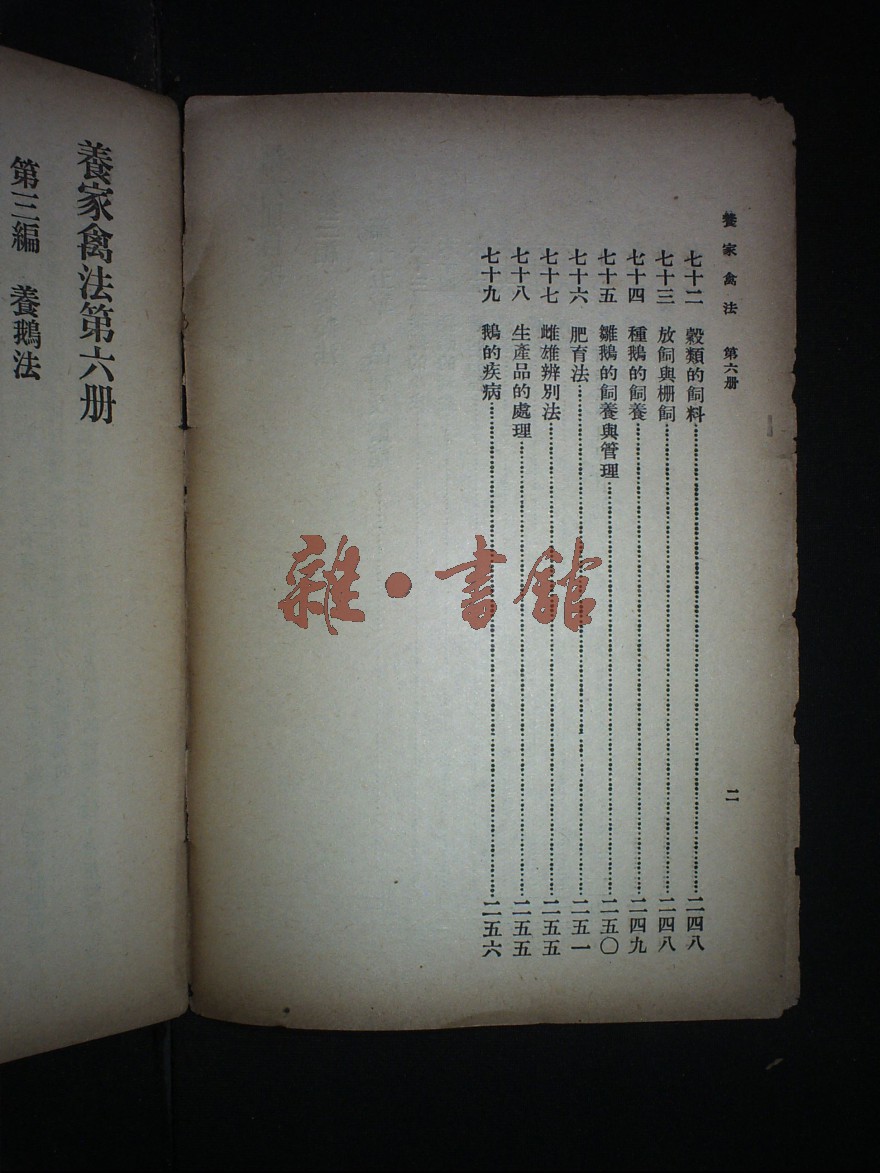 養家禽法　第六册
二
七十二　穀類的飼料……二四八
七十三　放飼與柵飼……二四八
七十四　種鵝的飼養……二四九
七十五　雛鵝的飼養與管理……二五〇
七十六　肥育法……二五一
七十七　雌雄辨別法……二五五
七十八　生產品的處理……二五五
七十九　鵝的疾病……二五六
養家禽法第六册
第三編　養鵝法
雜·書館